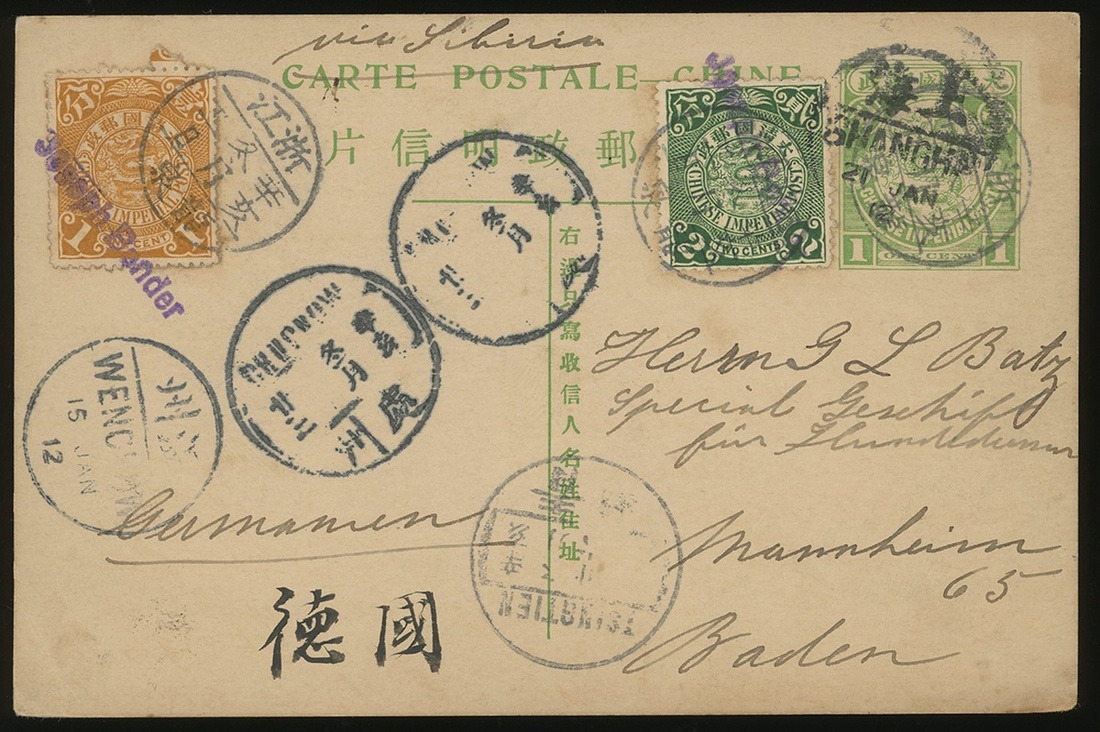 via Siberia
CARTE POSTALE CHINE
片信明政郵
右邊只寫收信人名姓住址
分
大清國郵政
CHINESE IMPERIAL POST
1 CENT 1
分貳
大清國郵政
CHINESE IMPERIAL POST
2 TWO CENTS 2
1 ONE CENT 1
海上
SHANGHAI
21 JAN
12
江浙
亥辛
CHUCHOW
辛亥
冬月
廿三
處州
辛
冬月
廿三
州溫
WENCHOW
15 JAN
12
TSINGTIEN
Joseph Bender
Herrn G L Batz
Special Geschäft
für
Mannheim
65
Baden
Germanien
德國